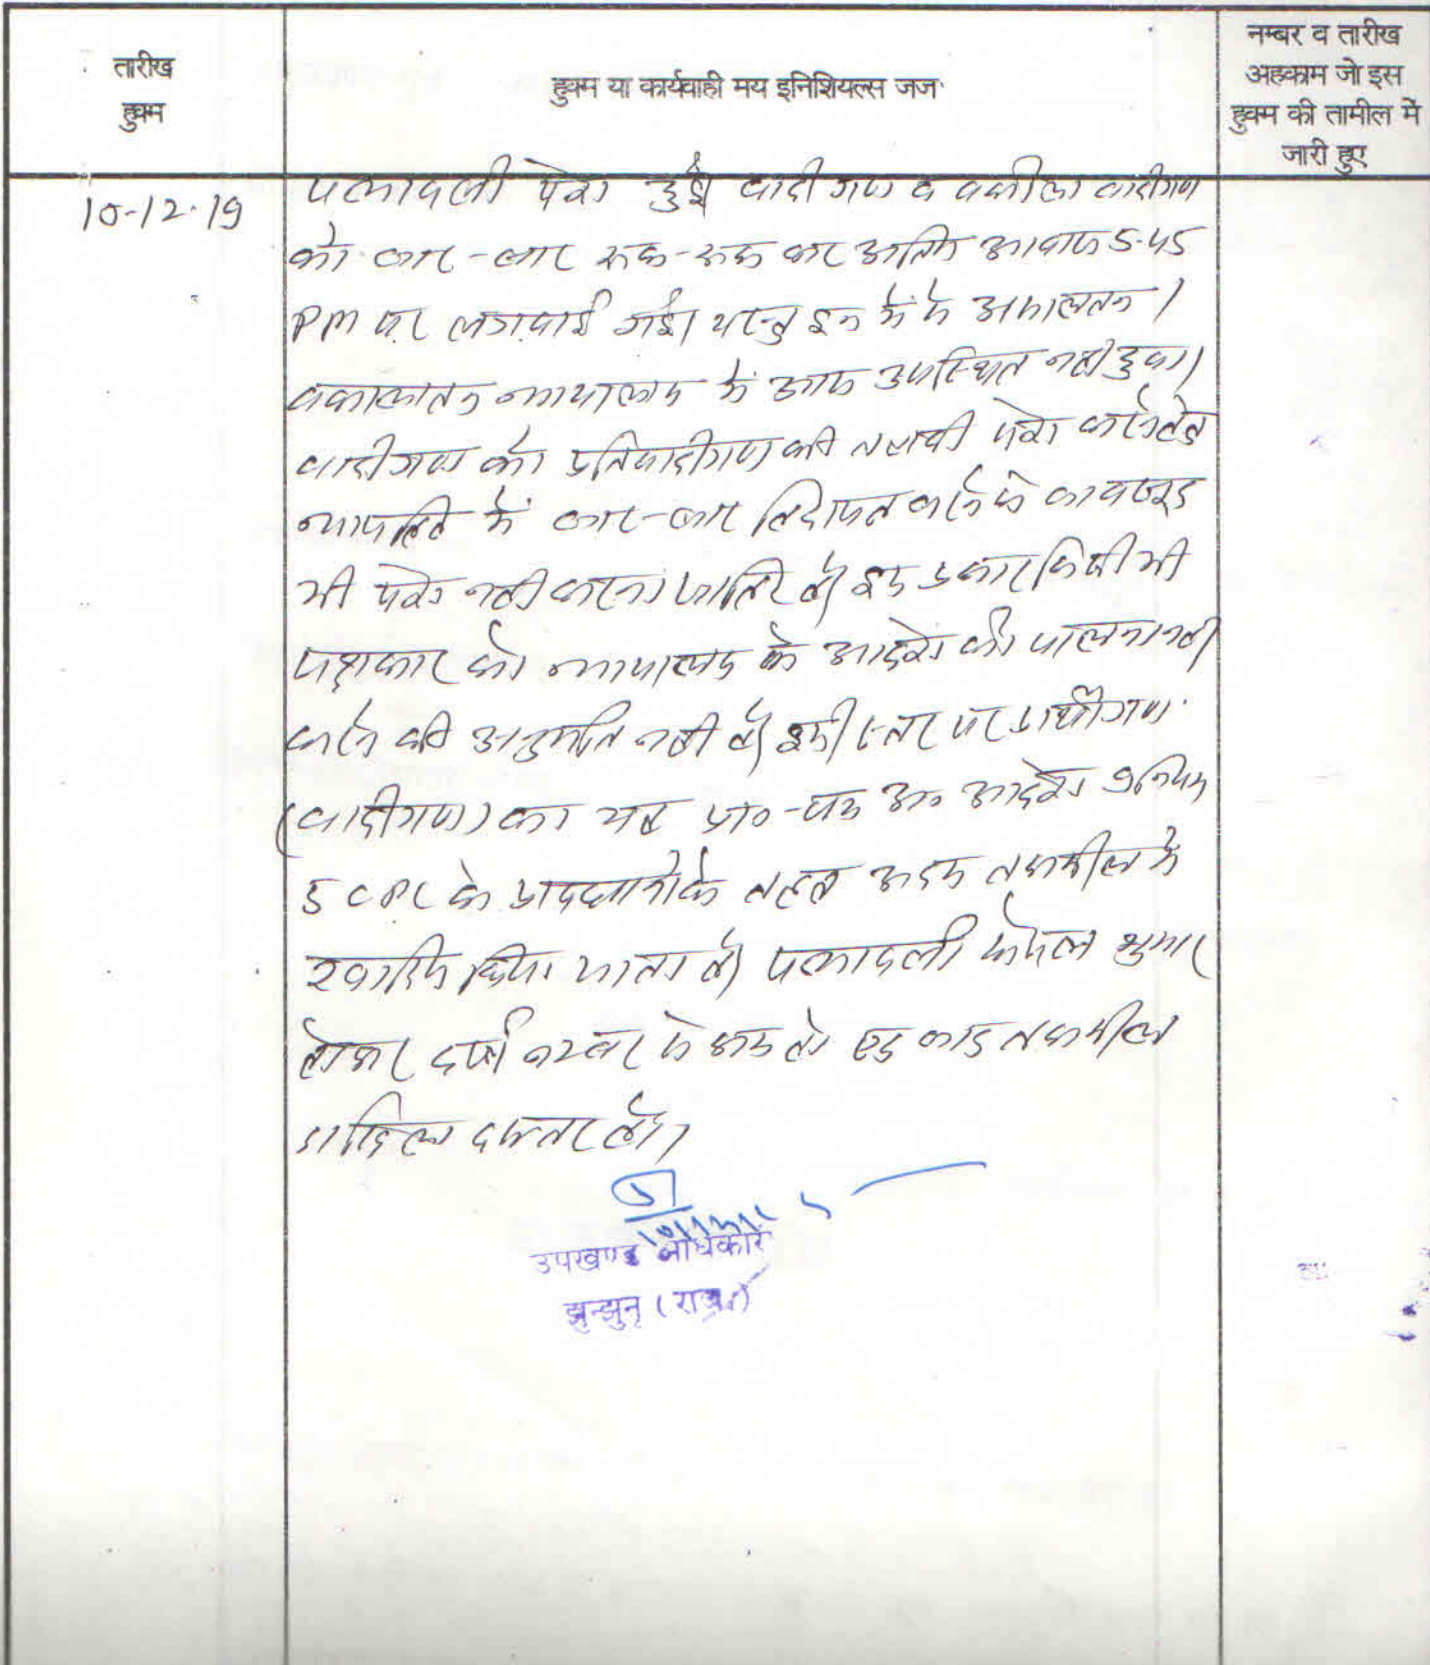 तारीख
हुक्म
हुक्म या कार्यवाही मय इनिशियल्स जज
नम्बर व तारीख
अहकाम जो इस
हुक्म की तामील में
जारी हुए
10-12-19
पत्रावली पेश हुई। वादीगण व वकील वादीगण
को बार-बार रूक-रूक कर अन्तिम आवाज 5-45
PM पर लगवाई गई। परन्तु इन में से असालतन /
वकालतन न्यायालय में आज उपस्थित नहीं हुवा।
वादीगण को प्रतिवादीगण की तलबी पेश करने हेतु
न्यायहित में बार-बार हिदायत करने के बावजूद
भी पेश नहीं करना जाहिर है। इस प्रकार किसी भी
पक्षकार को न्यायालय के आदेश की पालना नहीं
करने की अनुमति नहीं है। इसी स्तर पर प्रार्थीगण
(वादीगण) का यह प्रा०-पत्र अ० आदेश 9 नियम
5 CPC के प्रावधानों के तहत अदम तकमील में
खारिज किया जाता है। पत्रावली फैसल शुमार
होकर दर्ज नम्बर से कम हो। बाद तकमील
दाखिल दफ्तर हो।
उपखण्ड अधिकारी
झुन्झुनू (राज०)